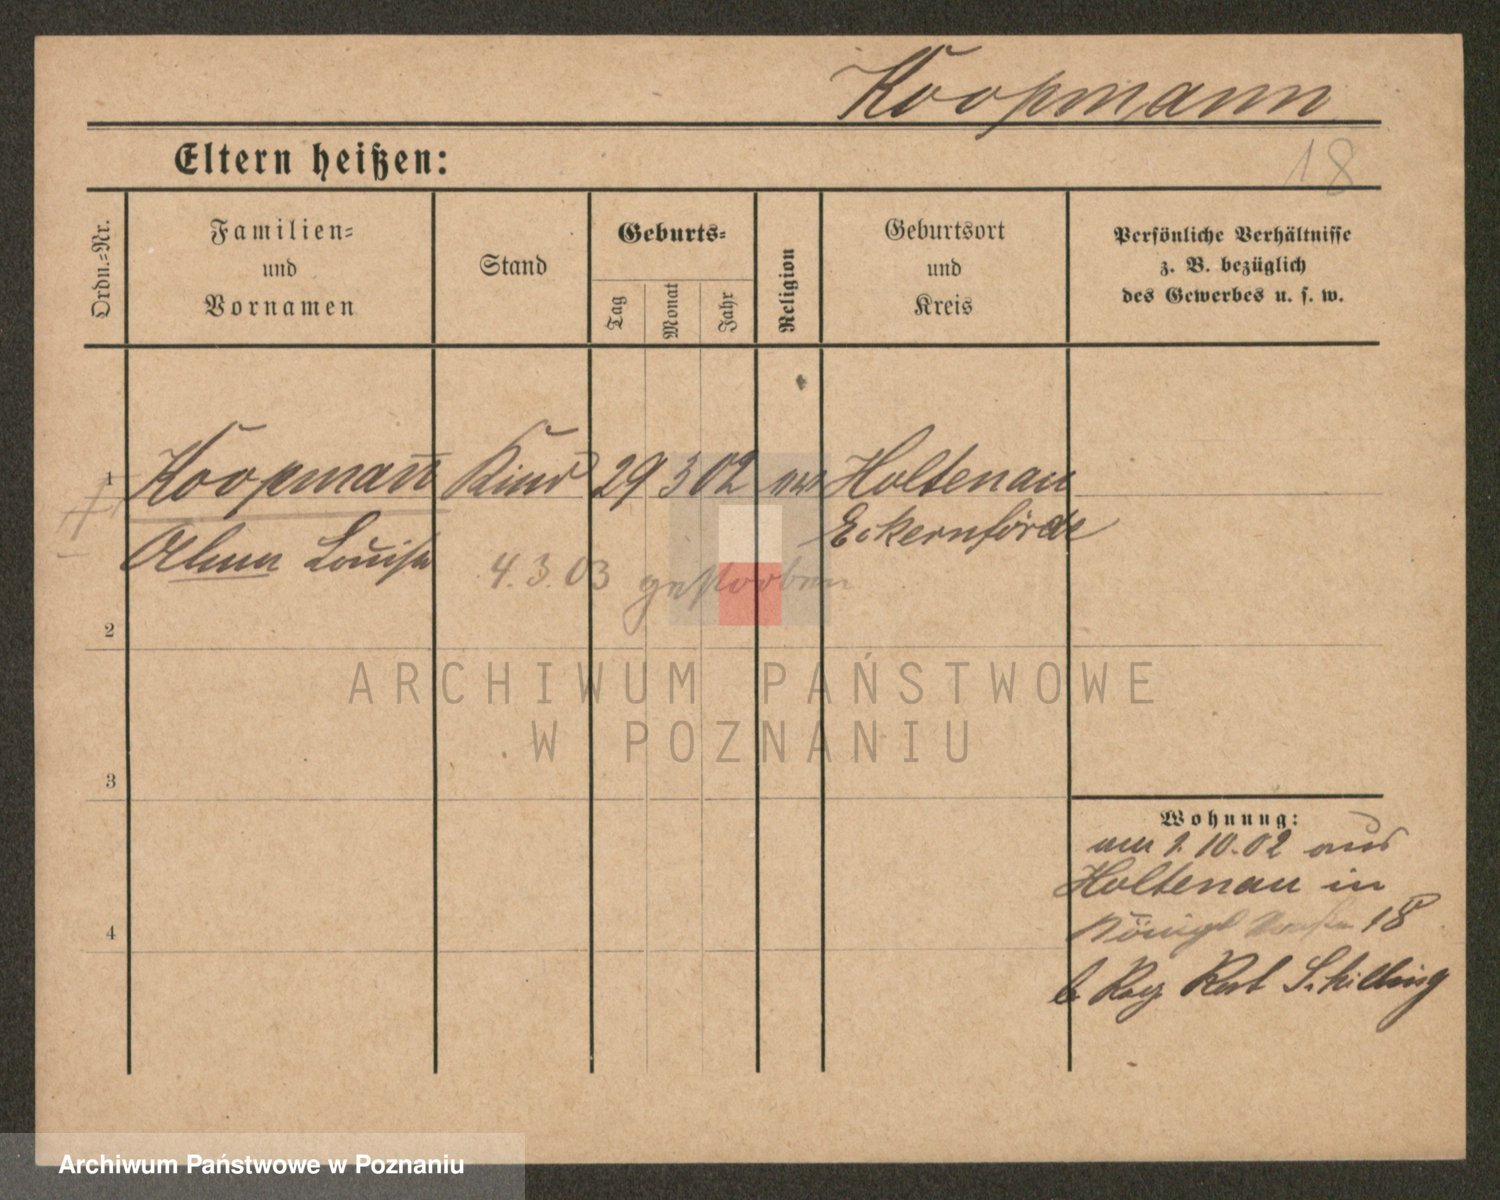 Koopmann
Eltern heißen:
18
Ordn.-Nr.
Familien-
und
Vornamen
Stand
Geburts-
Tag
Monat
Jahr
Religion
Geburtsort
und
Kreis
Persönliche Verhältnisse
z. B. bezüglich
des Gewerbes u. s. w.
1
Koopmañ Kind 29 3 02 ev Holtenau
Eckernförde
Alma Louise
4.3.03 gestorben
2
ARCHIWUM PAŃSTWOWE
W POZNANIU
3
Wohnung:
am 1.10.02 aus
Holtenau in
18
b. Reg Schilling
4
Archiwum Państwowe w Poznaniu